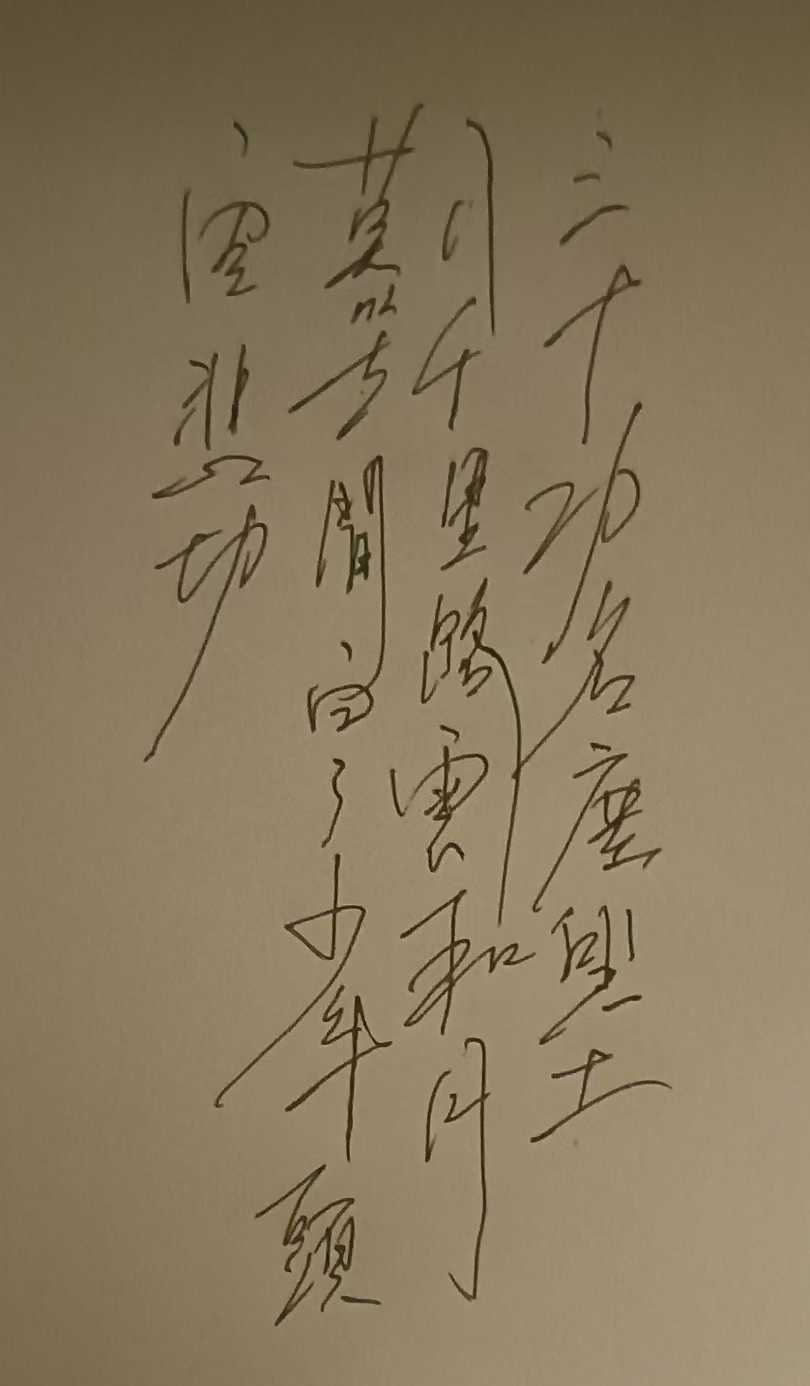 三十功名塵與土
八千里路雲和月
莫等閒白了少年頭
空悲切